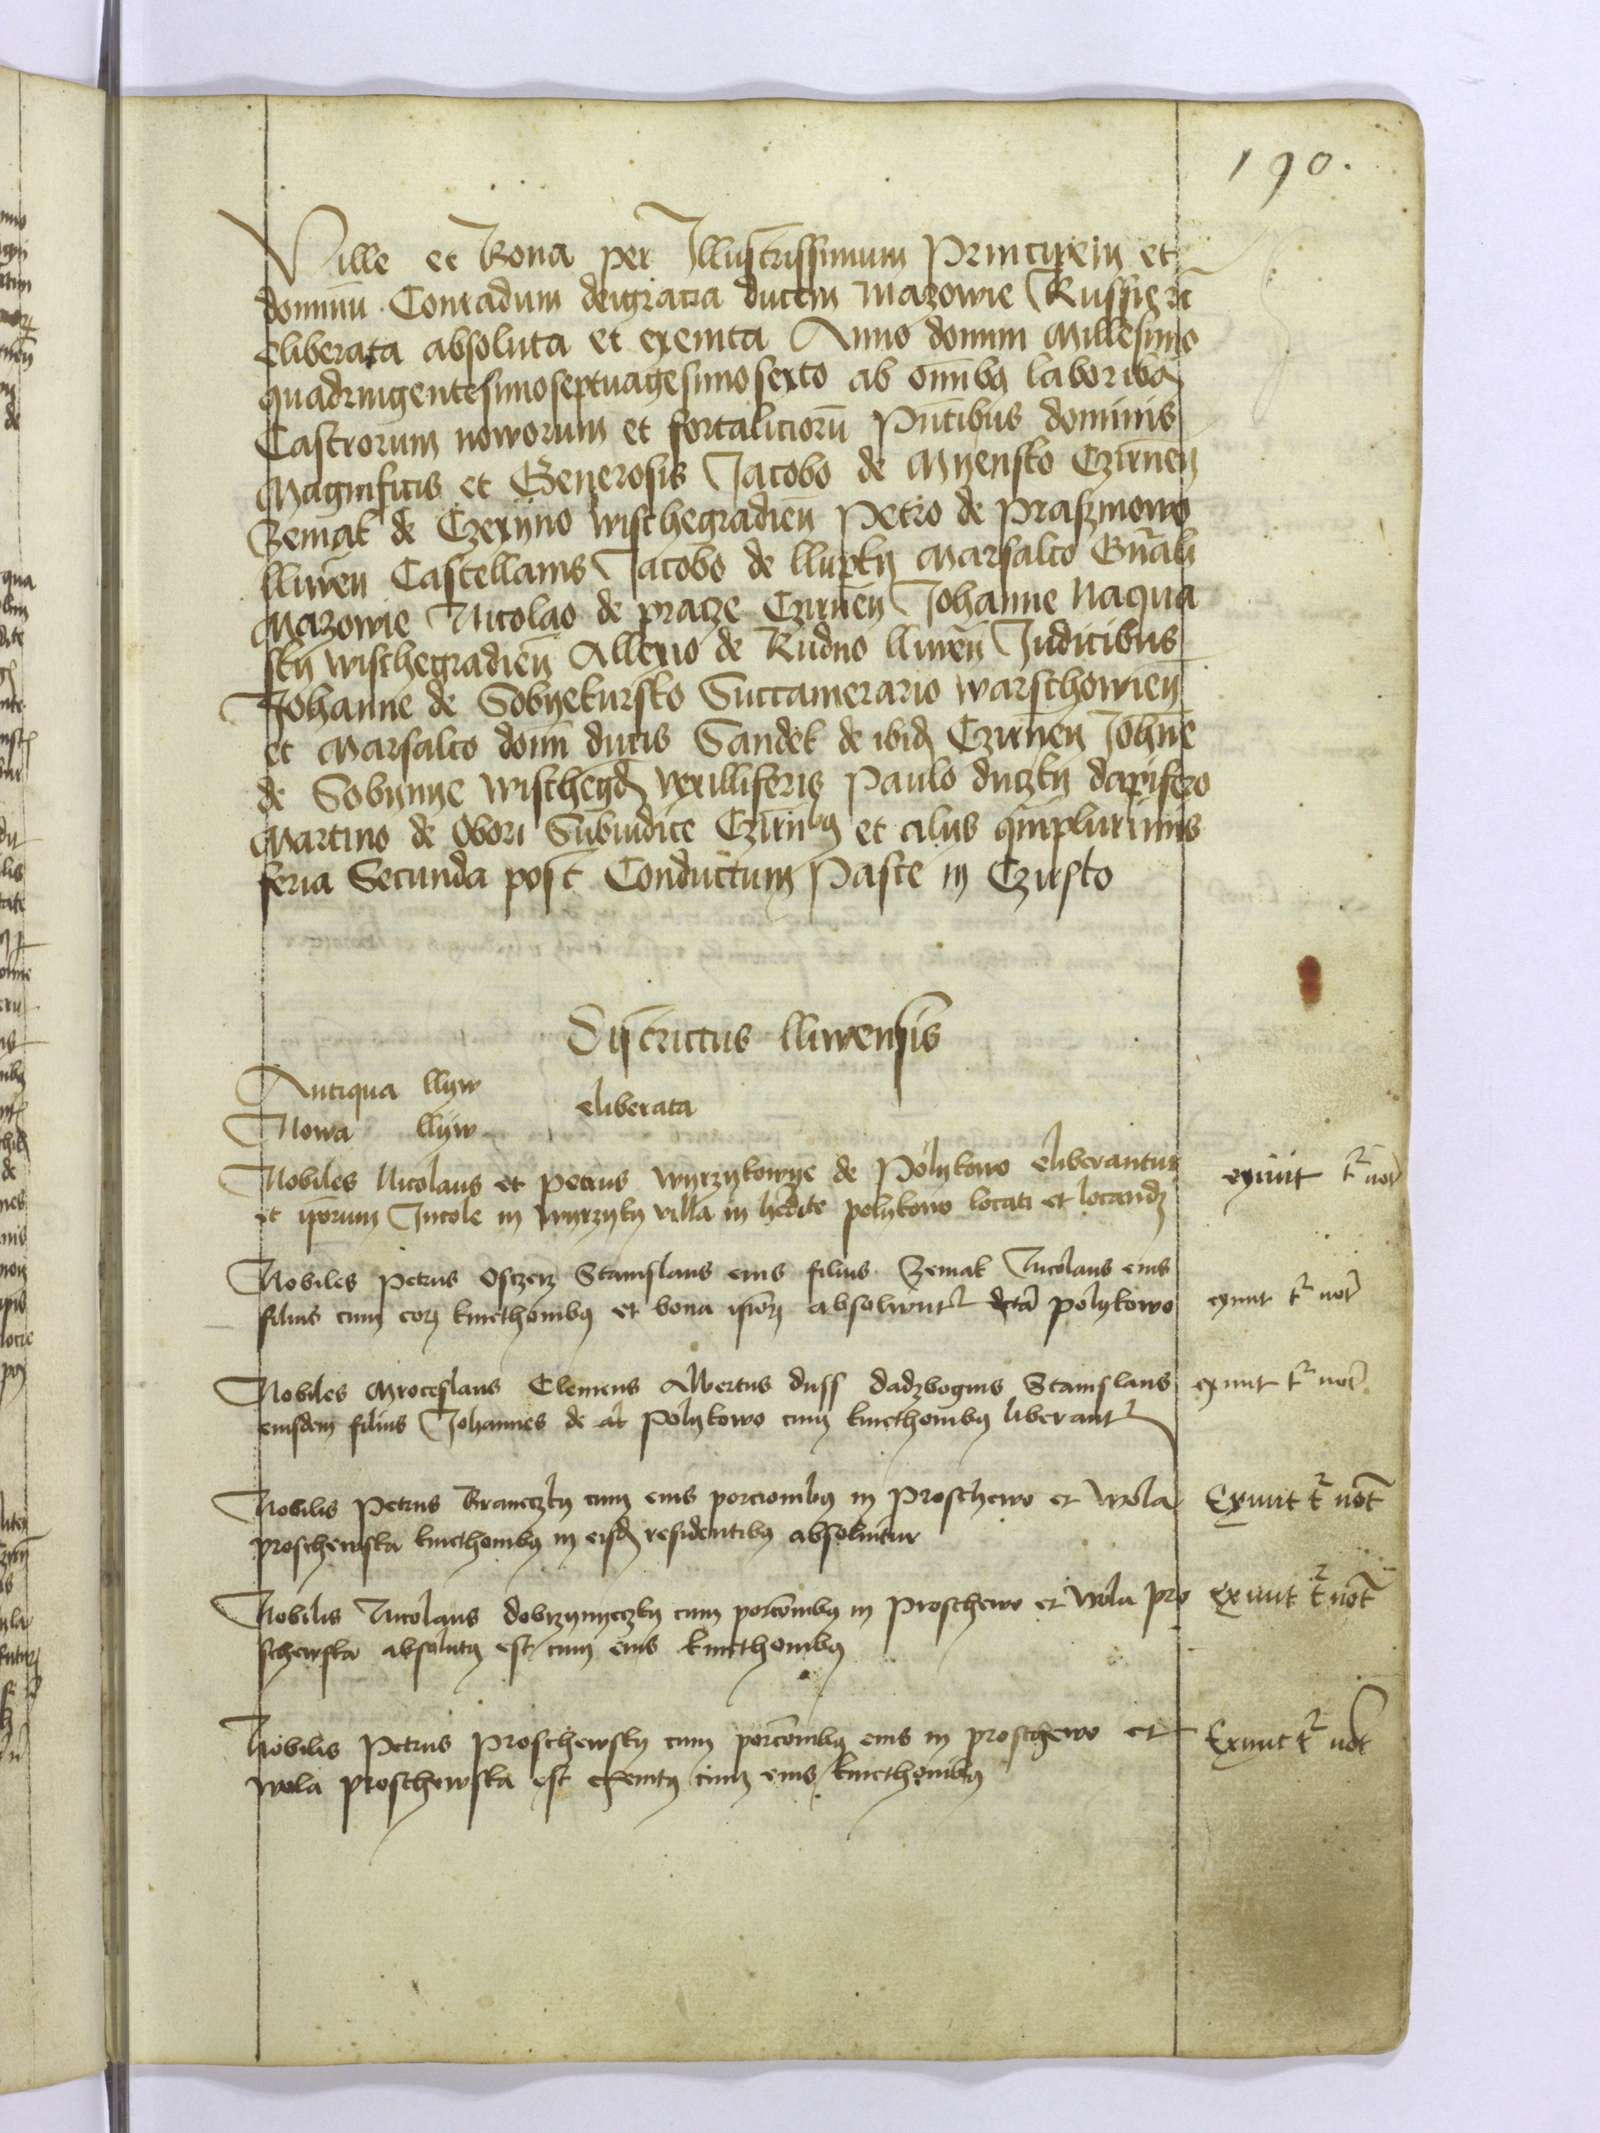 190.
Ville et bona per Illustrissimum Principem et
dominū Conradum deigracia ducem Mazowie Russie etc̄
eliberata absoluta et exemta Anno domini Millesimo
quadringentesimoseptuagesimosexto ab om̄ibus laboribus
Castrorum noworum et fortaliciorū Pn̄tibus dominis
Magnificis et Generosis Jacobo de Myensko Czirnen̄
Zemak de Czexyno wischegradien̄ Petro de praszmowo
lliwen̄ Castellanis Jacobo de llupky Marsalco Gn̄ali
Mazowie Nicolao de pracze Czirnen̄ Johanne Naqua
sky wischegradien̄ Allexio de Rudno lliwen̄ Judicibus
Johanne de Sobyekursko Succamerario warschowien̄
et Marsalco domī ducis Sandek de ibid Czirnen̄ Joh̄ne
de Sobynye wischegd vexilliferis Paulo duczky dapifero
Martino de Obori Subiudice Czirn̄bus et aliis q̄mplurimis
feria Secunda post Conductum Pasce in Czirsko
Districtus lliwensis
Antiqua llyw
eliberata
Nowa llyw
Nobiles Nicolaus et petrus wyrzykowye de Polykowo eliberantur
exiūt tr not
et ip̄orum Incole in wyrzyky villa in hēdite polykowo locati et locand
Nobiles Petrus Osczerz Stanislaus eius filius Zemak Nicolaus eius
filius cum eorum kmethonibus et bona ip̄or absolwūtr dictā polykowo
exiunt tr not
Nobiles Mroceslaus Clemens Albertus duss dadzbogius Stanislaus
exiunt tr not
eiusdem filius Johannes de at Polykowo cum kmethonibus liberantr
Nobilis Petrus braneczky cum eius porcionibus in Proschewo et wola
Exiunt tr not
proschewska kmethonibus in eisd residentibus absoluitur
Nobilis Nicolaus dobrzynyeczky cum porc̄onibus in Proschewo et wola pro
Exiunt tr not
schewska absolutus est cum eius kmethonibus
Nobilis Petrus Proschewsky cum porc̄onibus eius in proschewo et
Exiunt tr not
wola proschewska est exemtus cum eius kmethonibus